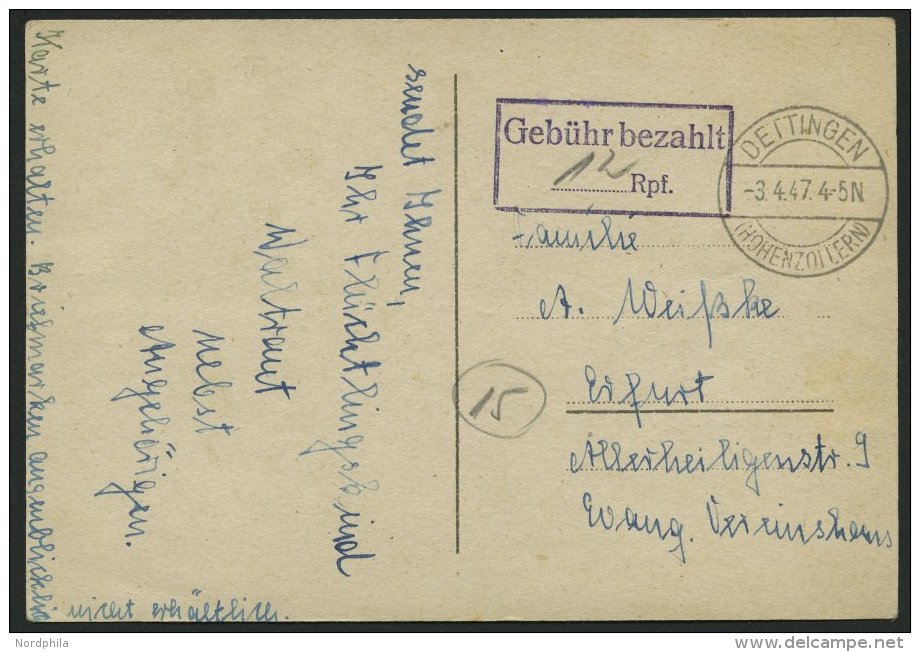 sendet Ihnen,
Ihr Flüchtlingskind
Waltraut
nebst
Angehörigen.
Karte erhalten. Briefmarken augenblicklich
nicht erhältlich.
Gebühr bezahlt
12 Rpf.
DETTINGEN
-3.4.47.4-5N
(HOHENZOLLERN)
Familie
A. Weißke
15
Erfurt
Allerheiligenstr. 9
Evang. Vereinshaus
Nordphila
www.delcampe.net